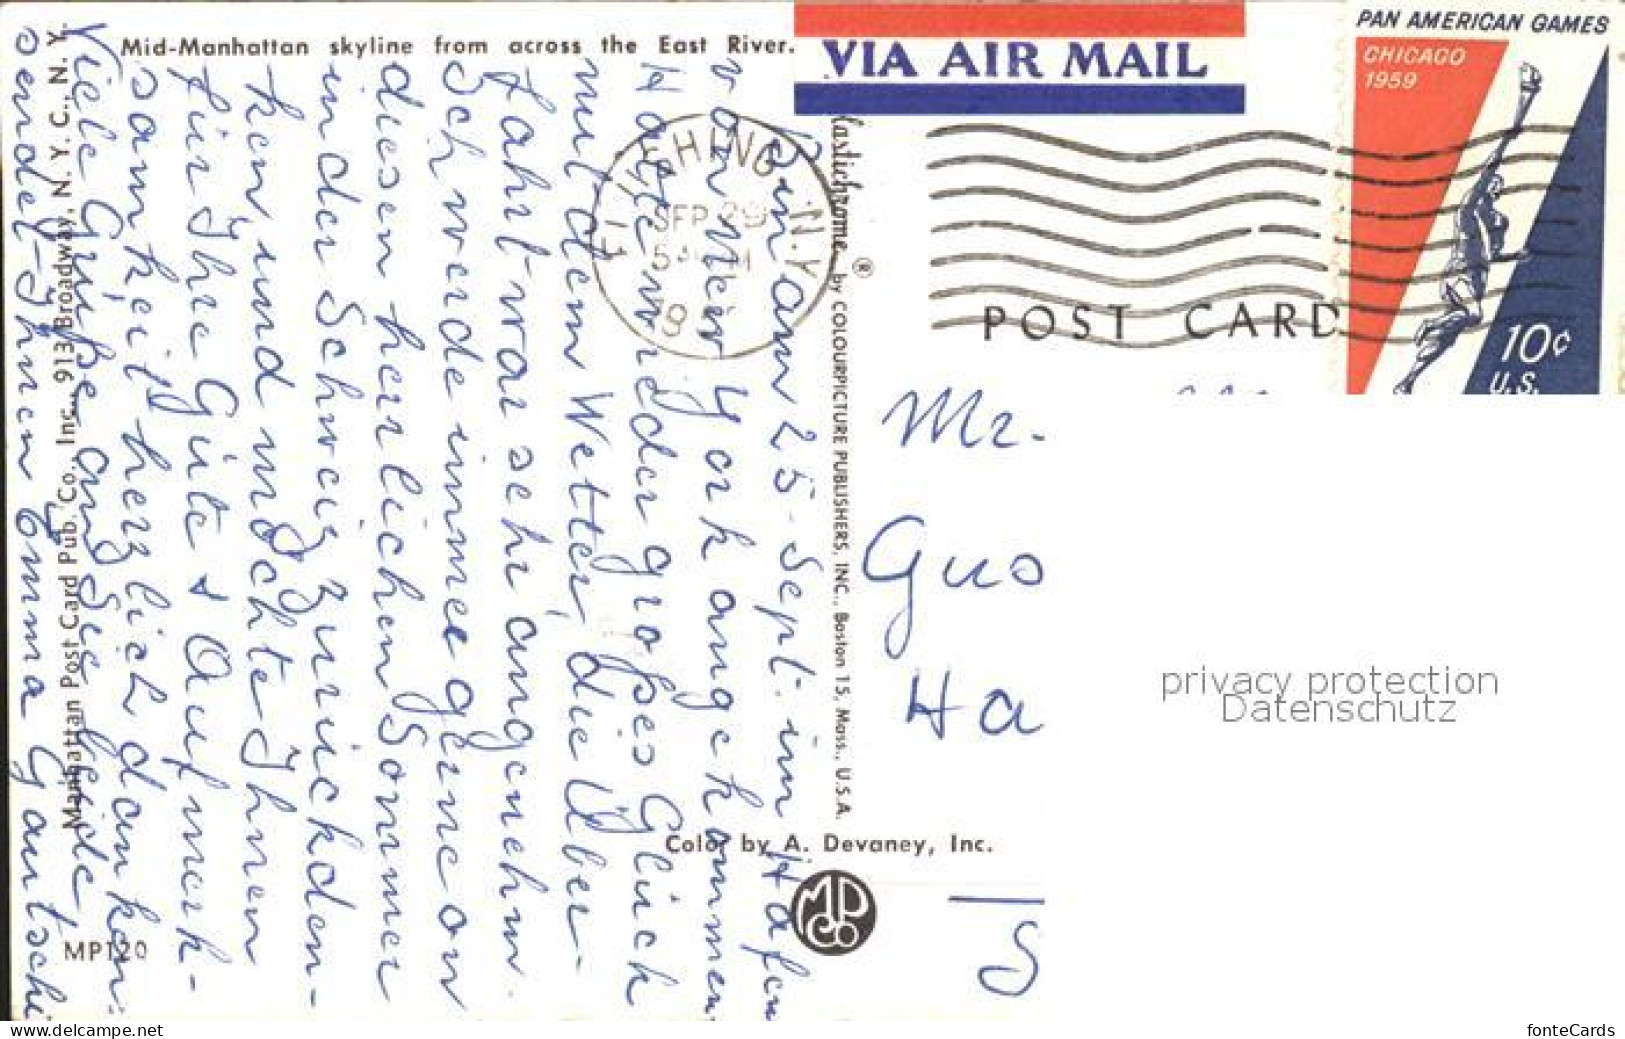 Mid-Manhattan skyline from across the East River.
VIA AIR MAIL
PAN AMERICAN GAMES
CHICAGO
1959
10¢
U.S.
FLUSHING N.Y.
SEP 29
POST CARD
Plastichrome ® by COLOURPICTURE PUBLISHERS, INC., Boston 15, Mass., U.S.A.
Bin am 25. Sept. im Hafen
von New York angekommen
Hatte wieder großes Glück
mit dem Wetter, die Über-
fahrt war sehr angenehm.
Ich werde immer gerne an
diesen herrlichen Sommer
in der Schweiz zurückden-
ken, und möchte Ihnen
für Ihre Güte & Aufmerk-
samkeit herzlich danken.
Viele Grüße an Sie beide,
sendet Ihnen Emma Gautschi
Manhattan Post Card Pub. Co., Inc., 913 Broadway, N. Y. C., N. Y.
Color by A. Devaney, Inc.
MDCo
MP120
Mr.
Gus
Ha
privacy protection
Datenschutz
fonteCards
delcampe.net